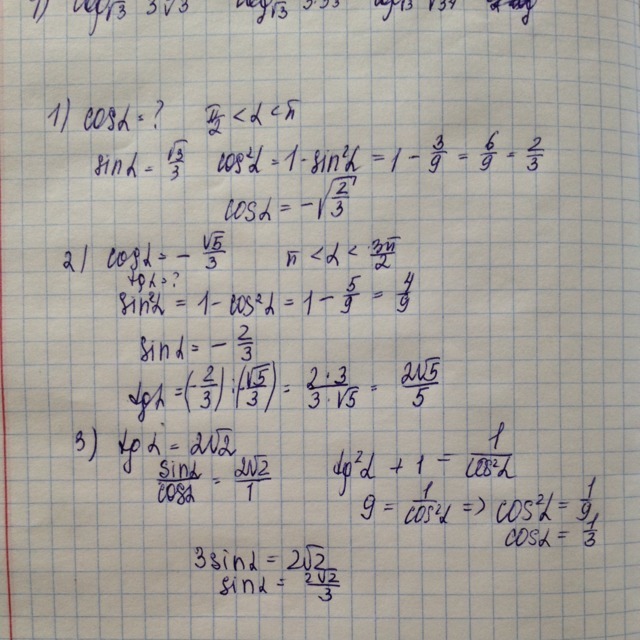 1) cosα = ? π/2 < α < π
sinα = √3/3 cos²α = 1 - sin²α = 1 - 3/9 = 6/9 = 2/3
cosα = -√(2/3)
2) cosα = - √5/3 π < α < 3π/2
tgα = ?
sin²α = 1 - cos²α = 1 - 5/9 = 4/9
sinα = - 2/3
tgα = (-2/3) : (√5/3) = 2·3/3·√5 = 2√5/5
3) tgα = 2√2 tg²α + 1 = 1/cos²α
sinα/cosα = 2√2/1
9 = 1/cos²α => cos²α = 1/9
cosα = 1/3
3sinα = 2√2
sinα = 2√2/3